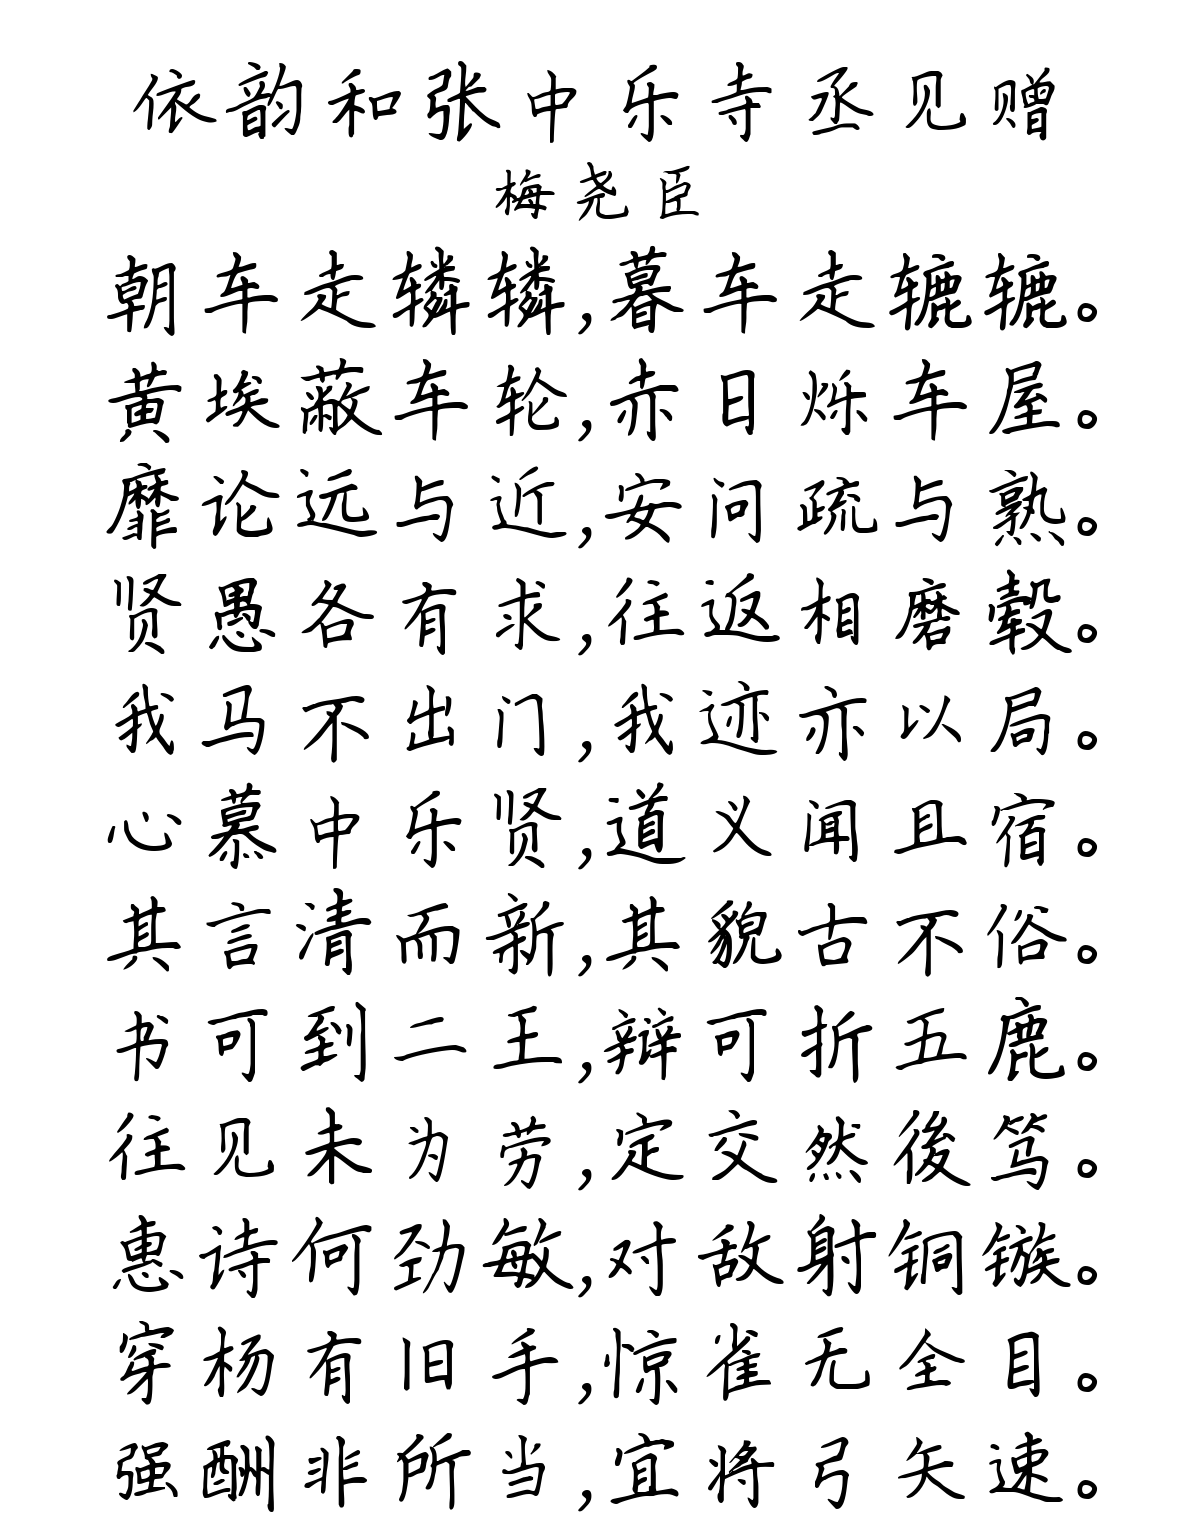 依韵和张中乐寺丞见赠
梅尧臣
朝车走辚辚,暮车走辘辘。
黄埃蔽车轮,赤日烁车屋。
靡论远与近,安问疏与熟。
贤愚各有求,往返相磨毂。
我马不出门,我迹亦以局。
心慕中乐贤,道义闻且宿。
其言清而新,其貌古不俗。
书可到二王,辩可折五鹿。
往见未为劳,定交然後笃。
惠诗何劲敏,对敌射铜镞。
穿杨有旧手,惊雀无全目。
强酬非所当,宜将弓矢速。